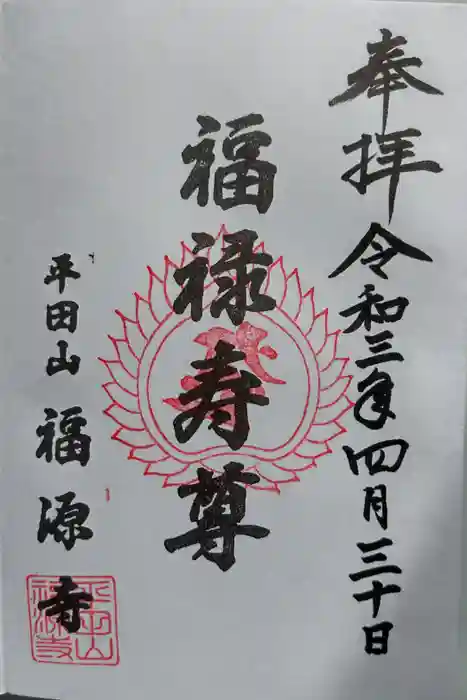 奉拝 令和三年四月三十日
福禄寿尊
平田山 福源寺
平田山福源寺